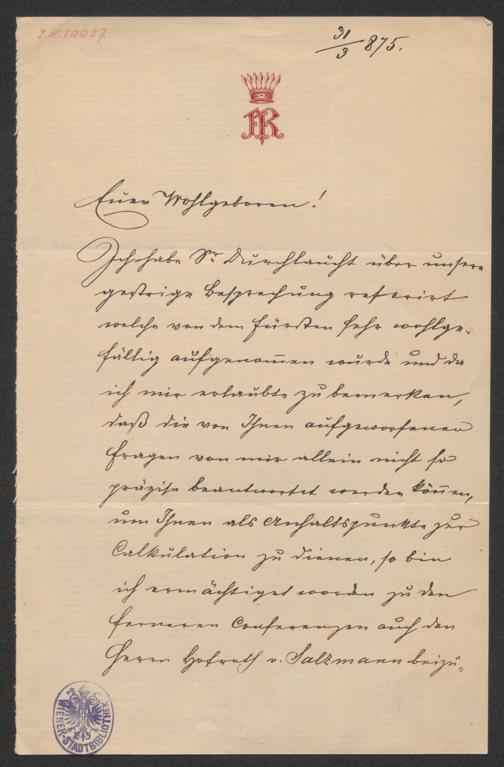 J.N. 10057
31/3 875.
Euer Wohlgeboren!
Ich habe Sr Durchlaucht über unsere
gestrige Besprechung referirt
welche von dem Fürsten sehr wohlge-
fällig aufgenom̄en wurde und da
ich mir erlaubte zu bemerken,
daß die von Ihnen aufgeworfenen
Fragen von mir allein nicht so
präzise beantwortet werden kön̄en,
um Ihnen als Anhaltspunkte zur
Calkulation zu dienen, so bin
ich ermächtiget worden zu den
ferneren Conferenzen auch den
Herrn Hofrath v. Salzmann beizu-
WIENER-STADTBIBLIOTHEK